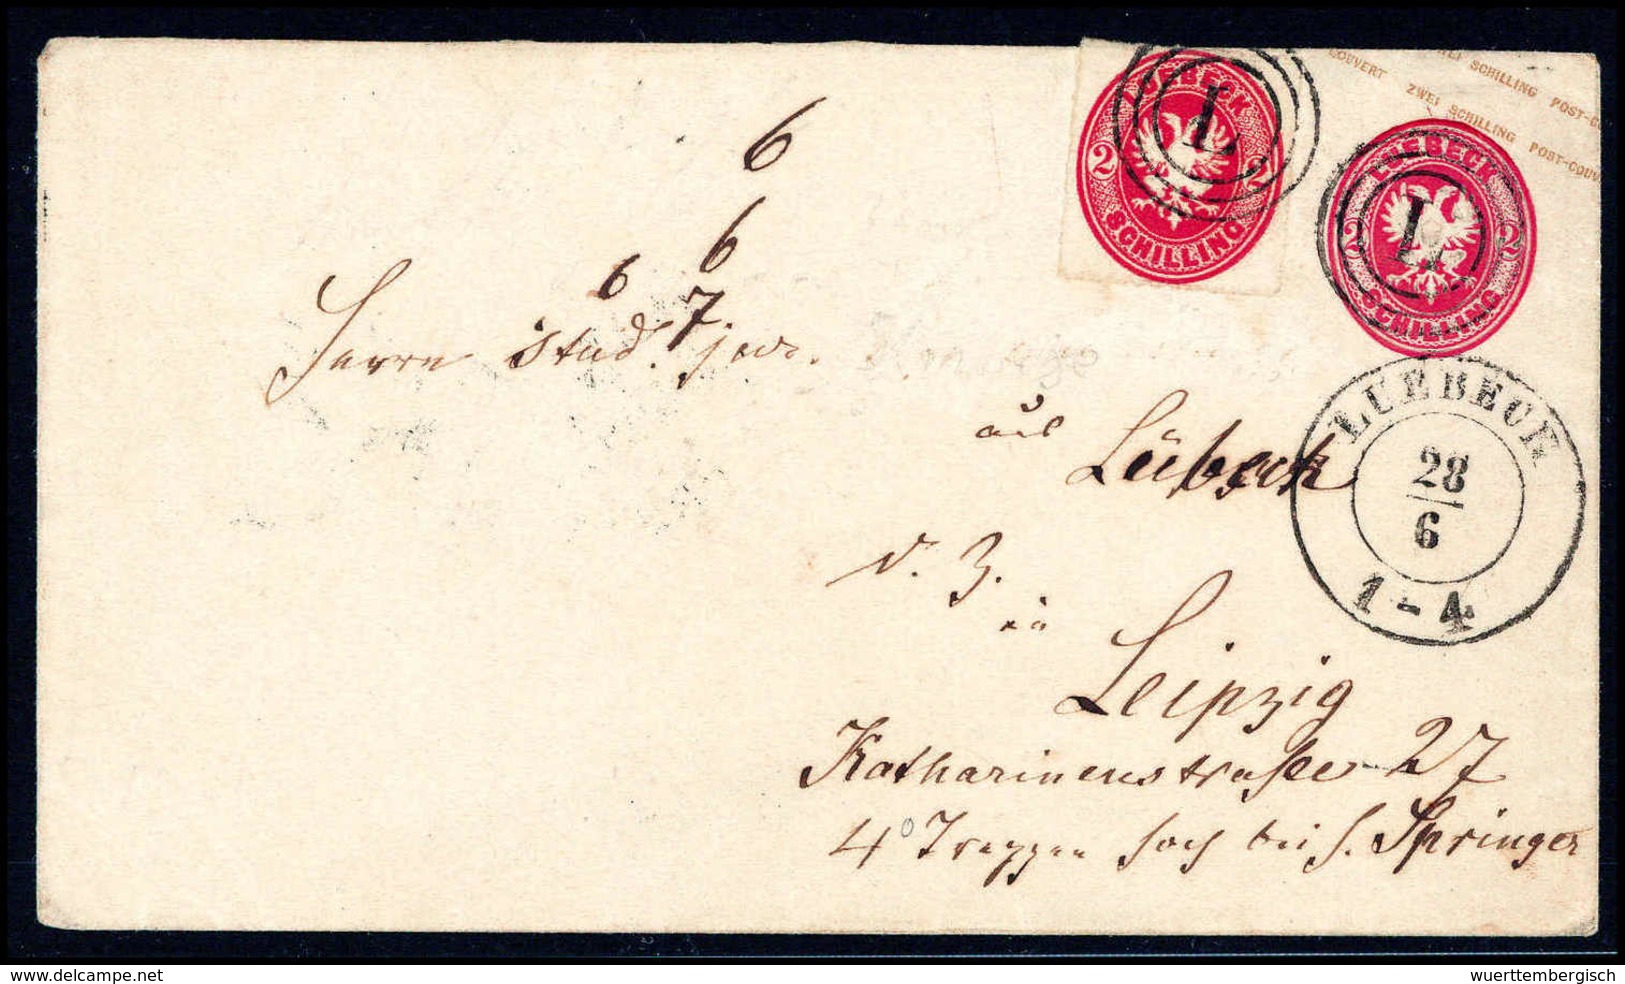 ZWEI SCHILLING POST-COUVERT
COUVERT ZWEI SCHILLING POST-COUV
LUEBECK
2 2
SCHILLING
L
LUEBECK
2 2
SCHILLING
L
6
6
6
7
Herrn stud. jur.
aus Lübeck
d. Z.
in
Leipzig
Katharinenstraße 27
4 Treppen hoch bei H. Springer
LUEBECK
28
6
1-4
delcampe.net
wuerttembergisch